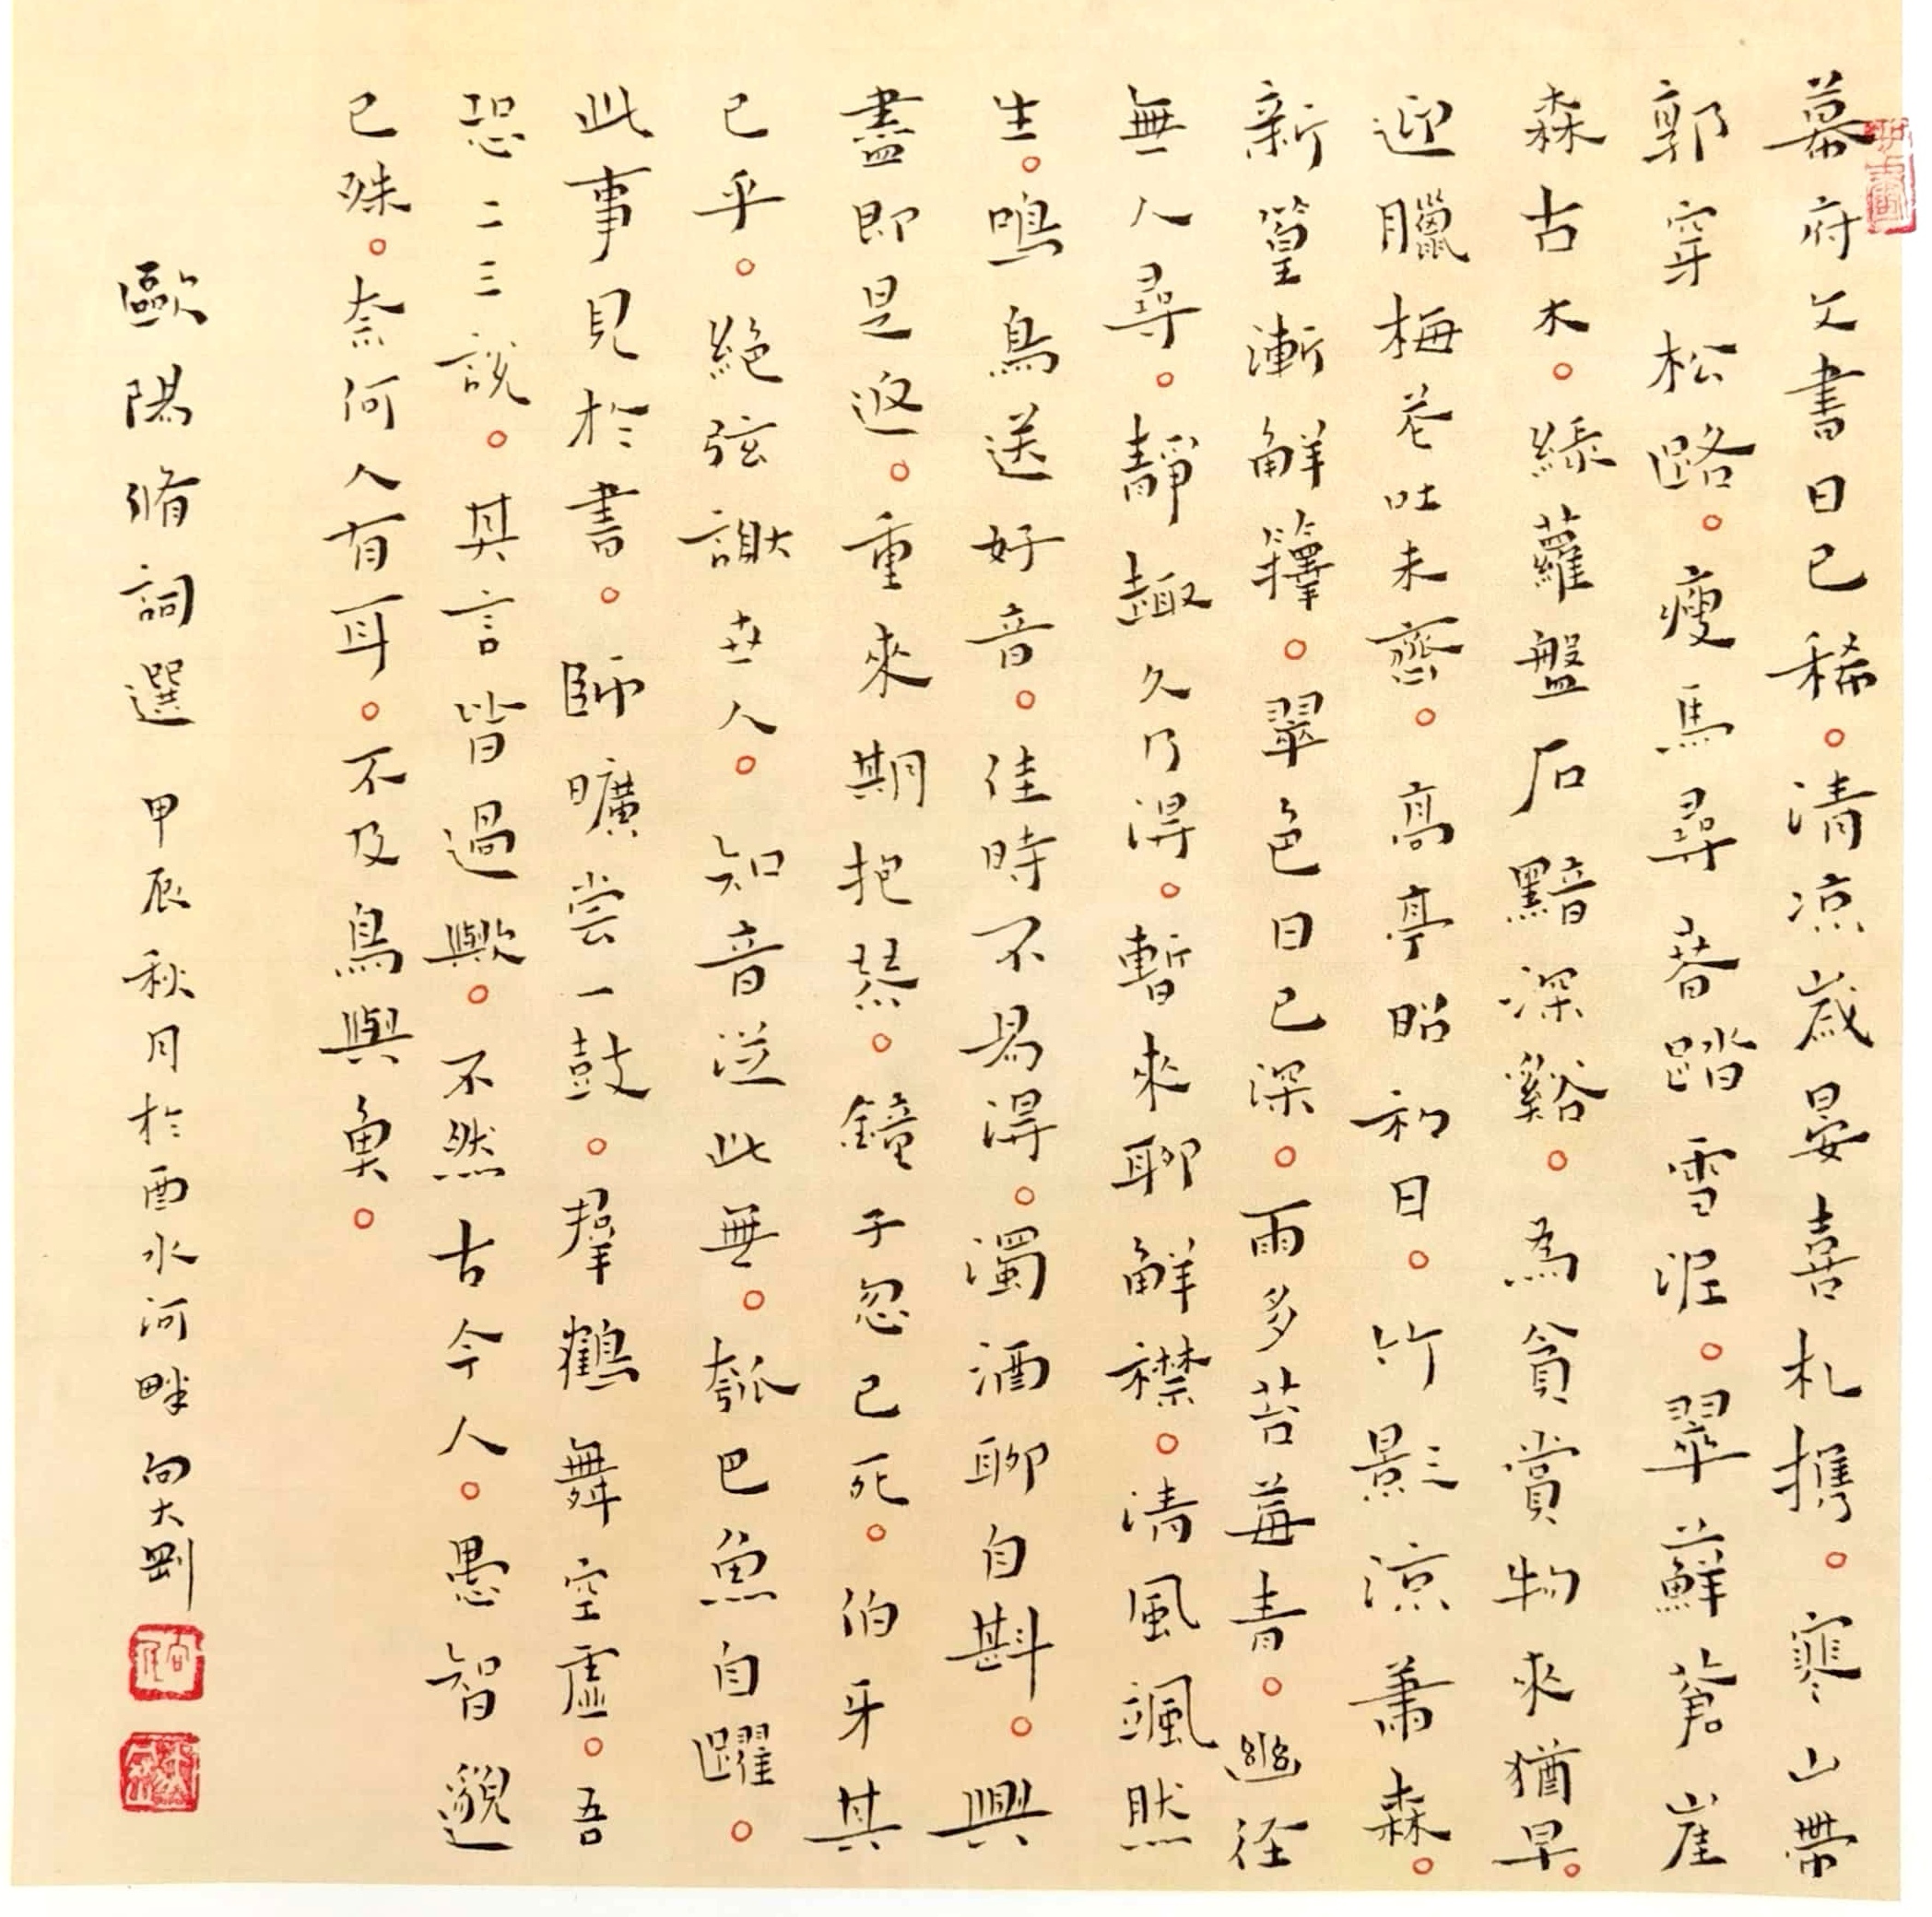 幕府文書日已稀。清凉歲晏喜札携。寒山帶
郭穿松路。瘦馬尋春踏雪泥。翠蘚蒼崖
森古木。緑蘿盤石黯深谿。為貪賞物来猶早。
迎臘梅花吐未齊。高亭照初日。竹影涼蕭森。
新篁漸解籜。翠色日已深。雨多苔莓青。幽径
無人尋。靜趣久乃得。暫來聊解襟。清風颯然
生。鳴鳥送好音。佳時不易得。濁酒聊自斟。興
盡即是返。重來期抱琴。鐘子忽已死。伯牙其
已乎。絕弦謝世人。知音從此無。瓠巴魚自躍。
此事見於書。師曠嘗一鼓。羣鶴舞空虛。吾
恐二三說。其言皆過歟。不然古今人。愚智邈
已殊。奈何人有耳。不及鳥與魚。
歐陽脩詞選 甲辰秋月於酉水河畔 向大剛